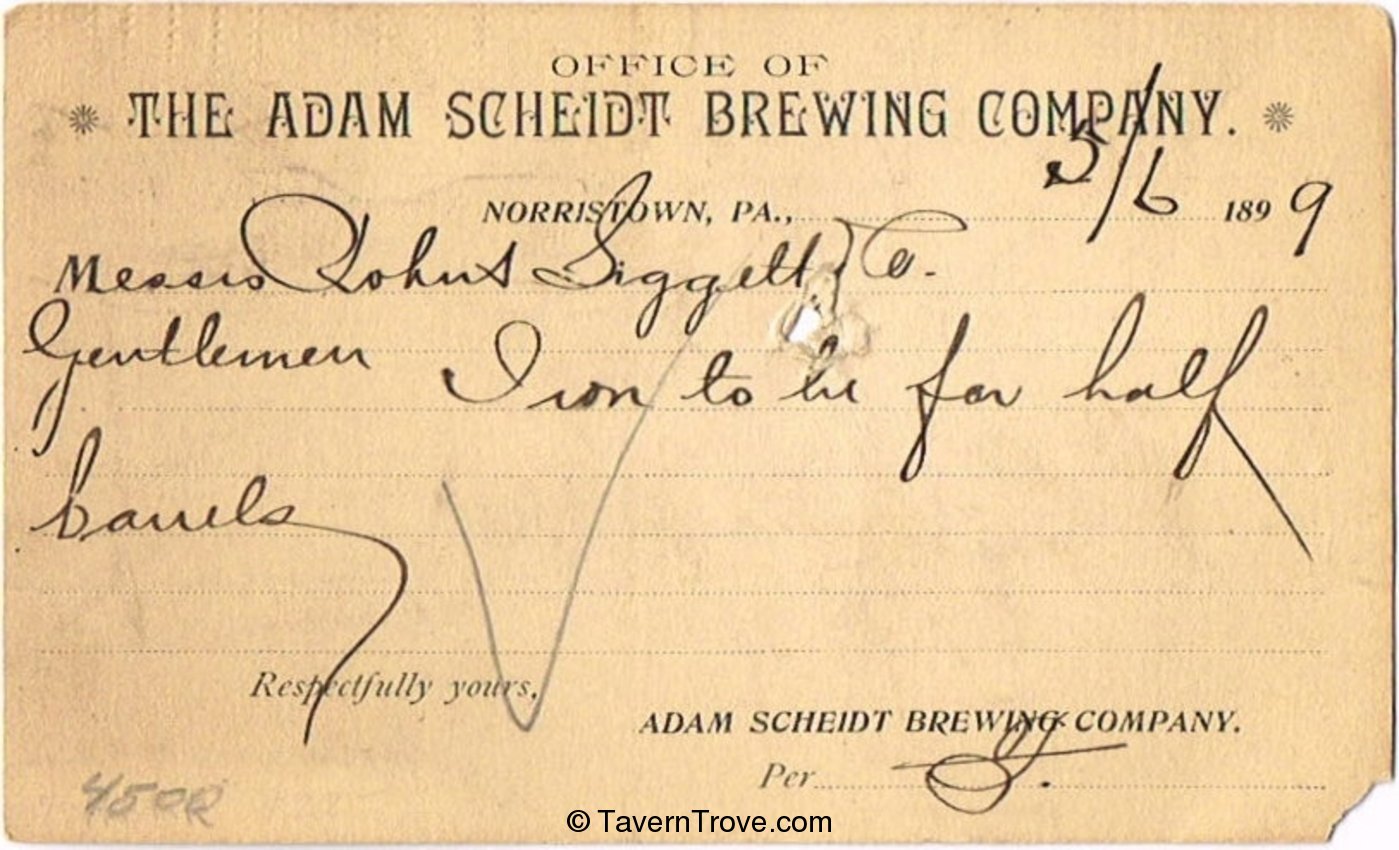 OFFICE OF
THE ADAM SCHEIDT BREWING COMPANY.
NORRISTOWN, PA., 5/6 1899
Messrs John Liggett Co.
Gentlemen Iron to be for half
barrels
Respectfully yours,
ADAM SCHEIDT BREWING COMPANY.
Per
© TavernTrove.com